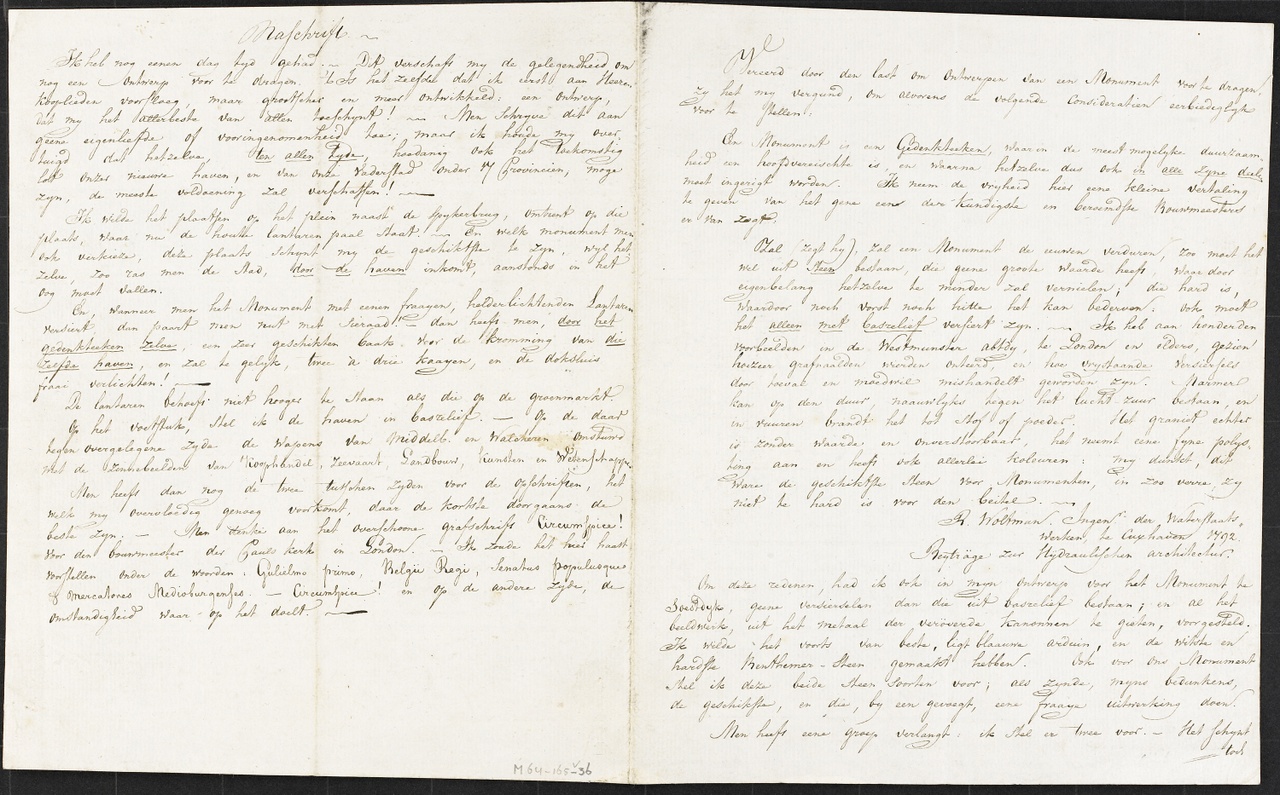 Naschrift ~
Ik heb nog eenen dag tyd gehad. ~ Dit verschaft my de gelegendheid om
nog een Ontwerp voor te dragen. 't Is het zelfde dat ik eerst aan Heeren
Kooplieden voorsloeg, maar grootscher en meer ontwikkeld: een ontwerp,
dat my het allerbeste van allen toeschynt! ~ Men Schryve dit aan
geene eigenliefde of vooringenomenheid toe; maar ik houde my over
tuigd dat hetzelve, ten allen tyde, hoedanig ook het toekomstig
lott onzer nieuwe haven, en van onze Vaderstad onder 17 Provincien, moge
zyn, de meeste voldoening zal verschaffen! ~
Ik wilde het plaatsen op het plein naast de Spykerbrug, omtrent op die
plaats, waar nu de houte lantaren paal staat ~ En welk monument men
ook verkieze, deze plaats schynt my de geschiktste te zyn, wyl het
zelve, zoo ras men de Stad, door de haven inkomt, aanstonds in het
oog moet vallen.
En, wanneer men het Monument met eenen fraayen, helderlichtenden Lantaren
versiert, dan paart men nut met Sieraad! ~ dan heeft men, door het
gedenkteeken zelve, een zeer geschikten baak voor de kromming van die
zelfde haven, en zal te gelyk, twee à drie kaayen, en de doksluis
fraai verlichten! ~
De lantaren behoeft niet hooger te staan als die op de groenmarkt
Op het voetstuk, stel ik de haven in baszelief. ~ Op de daar
tegen overgelegene Zyde de Wapens van Middelb. en Walcheren omstuwd
met de Zinnebeelden van Koophandel, Zeevaart, Landbouw, Kunsten en Wetenschappen
Men heeft dan nog de twee tusschen Zyden voor de opschriften, het
welk my overvloedig genoeg voorkomt, daar de kortste doorgaans de
beste zyn. ~ Men denke aan het overschoone grafschrift Circumspice!
voor den bouwmeester der Pauls kerk in London. ~ Ik zoude het hier haast
voorstellen onder de woorden: Gulielmo primo, Belgii Regi, Senatus populusque
& Mercatores Medioburgenses. ~ Circumspice! en op de andere Zyde, de
omstandigheid waar op het doelt. ~
M64-165v-36
Vereerd door den last om Ontwerpen van een Monument voor te dragen,
zy het my vergund, om alvorens de volgende Consideratien eerbiediglyk
voor te stellen:
Een Monument is een Gedenkteeken, waarin de meest mogelyke duurzaam-
heid een hoofdvereischte is, en waarna hetzelve dus ook in alle zyne deelen
moet ingerigt worden. Ik neem de vryheid hier eene kleine vertaling
te geven van het gene een der kundigste en beroemdste Bouwmeesters
er van zegt.
Zal (zegt hy), zal een Monument de eeuwen verduren, zoo moet het
wel uit steen bestaan, die geene groote waarde heeft, waar door
eigenbelang hetzelve te minder zal vernielen; die hard is,
waardoor noch vorst noch hitte het kan bederven. Ook moet
het alleen met baszelief versiert zyn. ~ Ik heb aan honderden
voorbeelden in de Westmunster abtdy, te London en elders, gezien
hoezeer grafnaalden werden onteerd, en hoe vrystaande Versiersels
door toeval en moedwil mishandelt geworden zyn. Marmer
kan op den duur, naauwlyks tegen het lucht zuur bestaan, en
in vuuren brandt het tot Stof of poeder. Het graniet echter
is zonder waarde en onverstoorbaar, het neemt eene fyne polys,
ting aan en heeft ook allerlei koleuren: my dunkt, dit
ware de geschiktste steen voor Monumenten, in zoo verre zy
niet te hard is voor den beitel. ~
R. Woltman. Ingenr. der Waterstaats,
Werken, te Cuxhaven 1792.
Beyträge zur Hydraulischen architectur.
Om deze redenen, had ik ook in myn ontwerp voor het Monument te
Soestdyk, geene versierselen dan die uit baszelief bestaan; en al het
beeldwerk, uit het metaal der veroverde kanonnen te gieten, voorgesteld.
Ik wilde het voorts van beste, ligt blaauwe arduin, en de witste en
hardste Benthemer-Steen gemaakt hebben. Ook voor ons Monument
stel ik deze beide Steen Soorten voor; als zynde, myns bedunkens,
de geschikste, en die, by een gevoegt, eene fraaye uitwerking doen.
Men heeft eene Groep verlangt: ik stel er twee voor. ~ Het schynt
toch